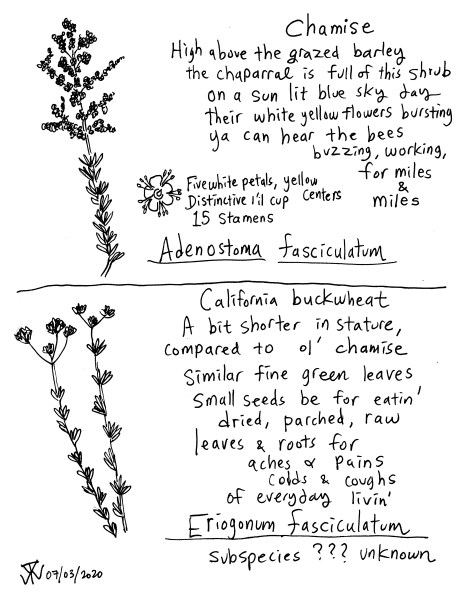 Chamise
High above the grazed barley
the chaparral is full of this shrub
on a sun lit blue sky day
their white yellow flowers bursting
ya can hear the bees
buzzing, working,
for miles
&
miles
Five white petals, yellow
Distinctive l'il cup centers
15 stamens
Adenostoma fasciculatum
California buckwheat
A bit shorter in stature,
compared to ol' chamise
Similar fine green leaves
Small seeds be for eatin'
dried, parched, raw
leaves & roots for
aches & pains
colds & coughs
of everyday livin'
Eriogonum fasciculatum
subspecies ??? unknown
07/03/2020